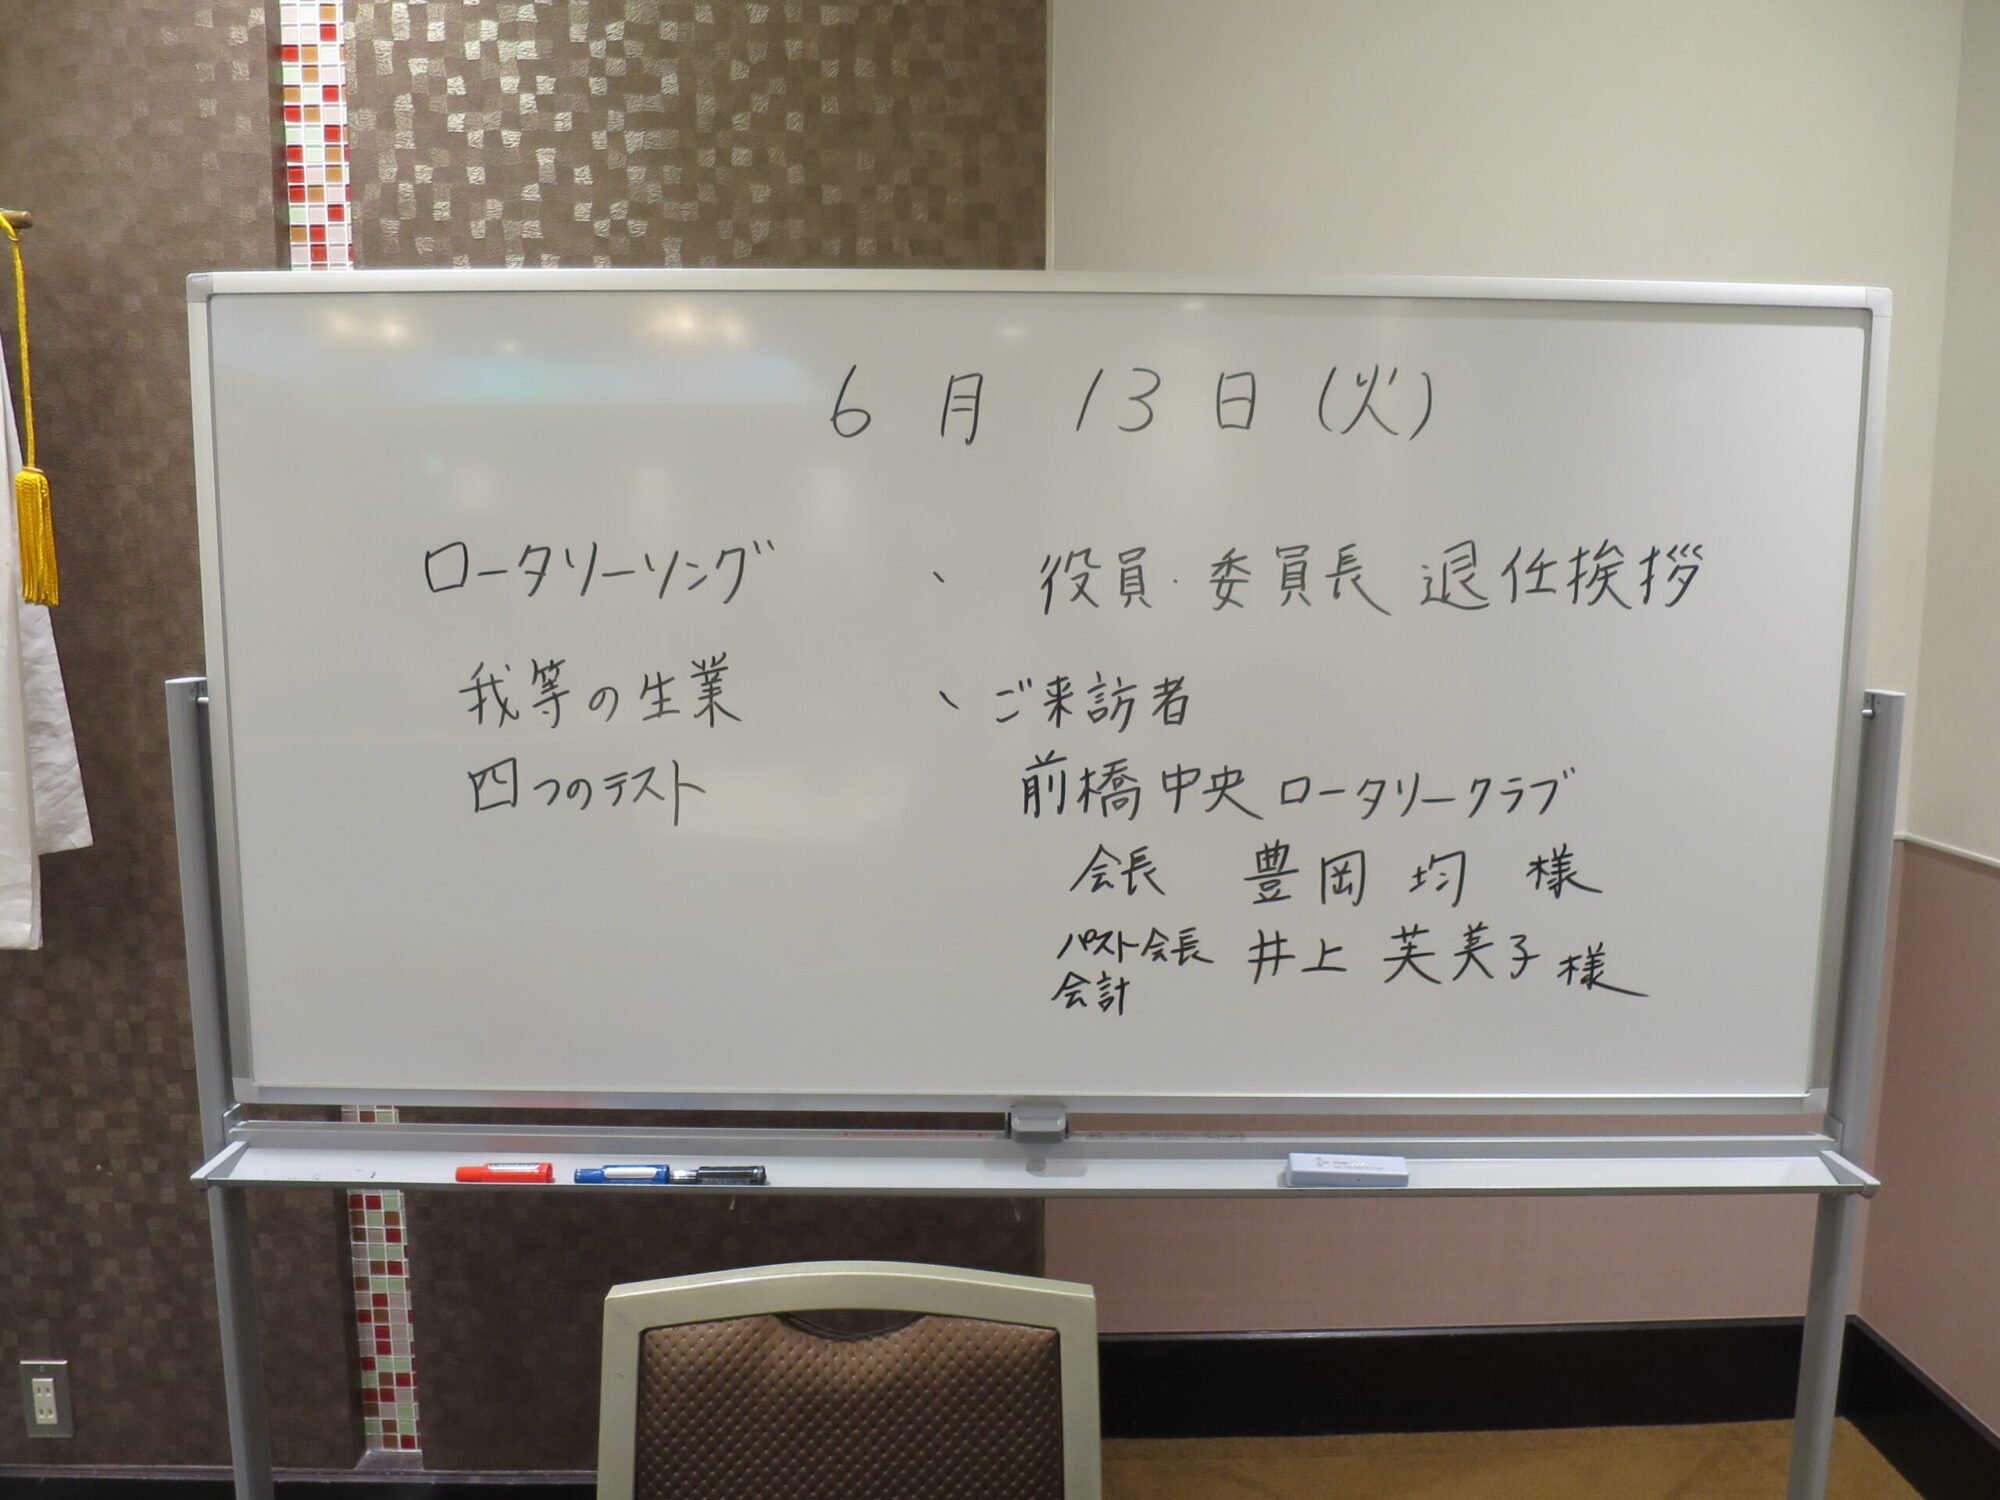 6月13日(火)
ロータリーソング
我等の生業
四つのテスト
、役員・委員長 退任挨拶
、ご来訪者
前橋中央ロータリークラブ
会長 豊岡 均 様
パスト会長 井上 芙美子 様
会計